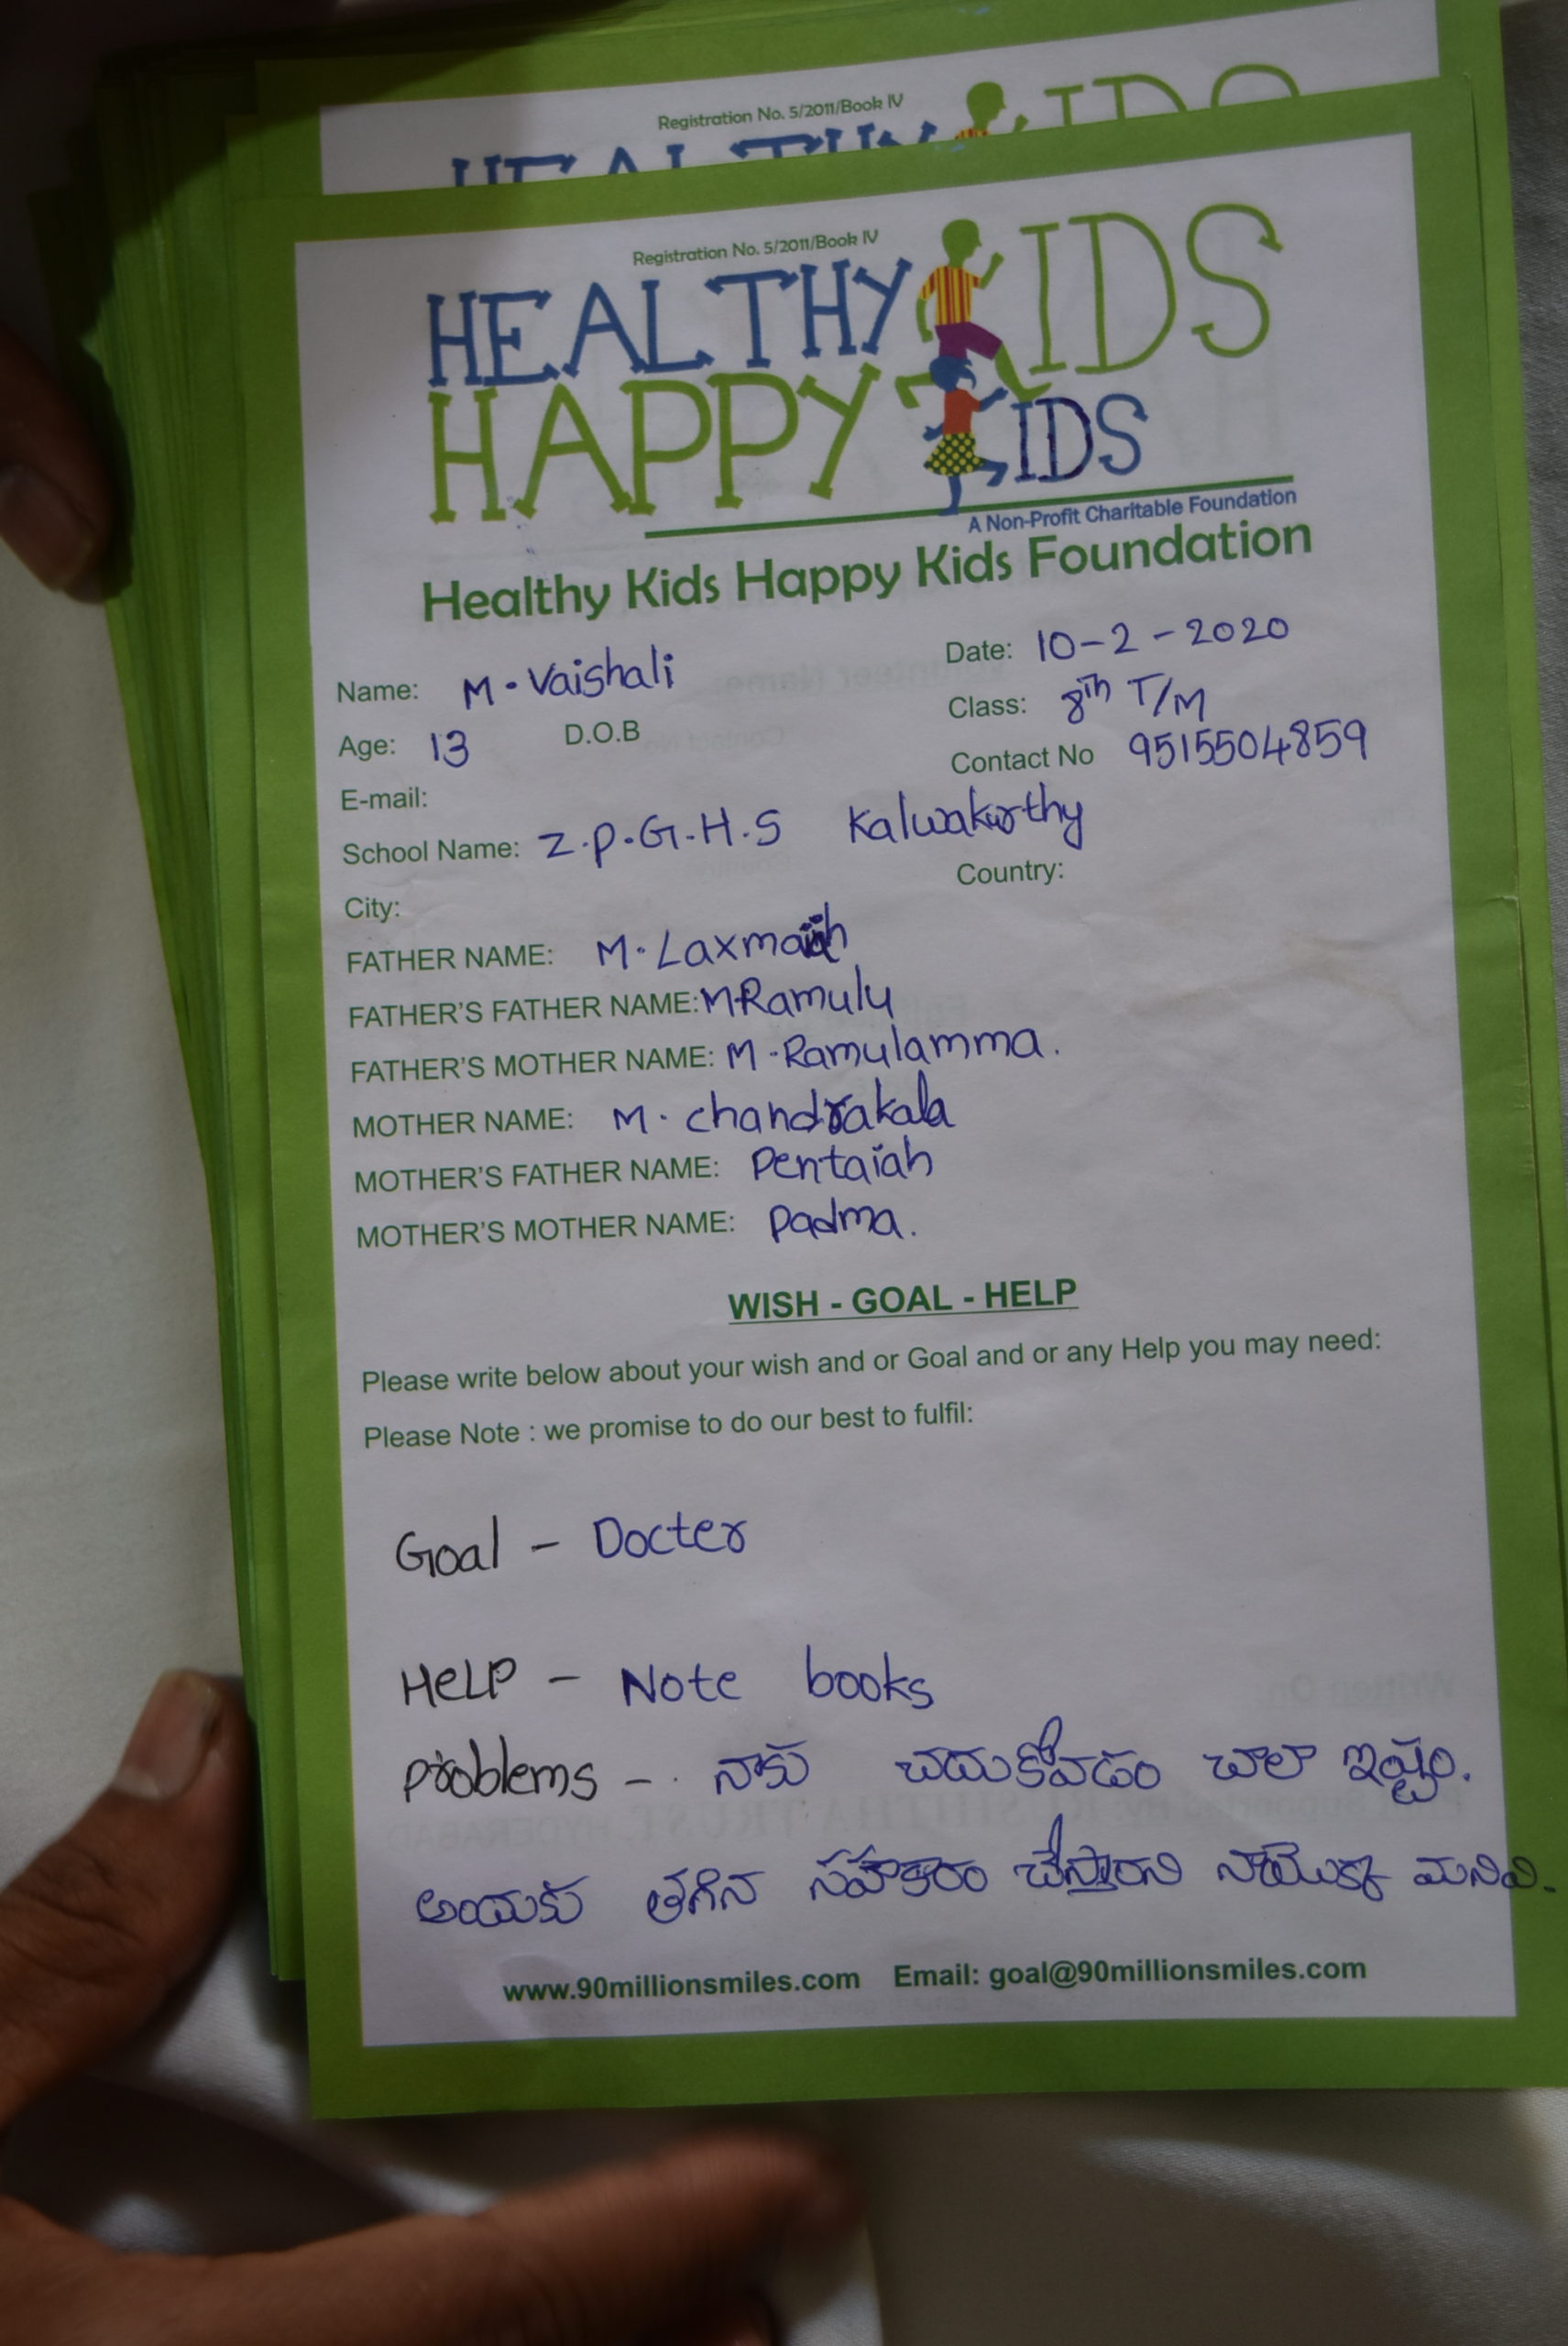 Registration No. 5/2011/Book IV
HEALTHY KIDS
Registration No. 5/2011/Book IV
HEALTHY KIDS
HAPPY KIDS
A Non-Profit Charitable Foundation
Healthy Kids Happy Kids Foundation
Name: M. Vaishali Date: 10-2-2020
Age: 13 D.O.B Class: 8th T/M
E-mail: Contact No 9515504859
School Name: Z.P.G.H.S Kalwakurthy
City: Country:
FATHER NAME: M. Laxmaiah
FATHER'S FATHER NAME: M.Ramulu
FATHER'S MOTHER NAME: M.Ramulamma.
MOTHER NAME: M. chandrakala
MOTHER'S FATHER NAME: Pentaiah
MOTHER'S MOTHER NAME: Padma.
WISH - GOAL - HELP
Please write below about your wish and or Goal and or any Help you may need:
Please Note : we promise to do our best to fulfil:
Goal - Docter
HeLP - Note books
Problems - నాకు చదుకోవడం చాలా ఇష్టం.
అందుకు తగిన సహకారం చేస్తారని నాయొక్క మనవి.
www.90millionsmiles.com Email: goal@90millionsmiles.com